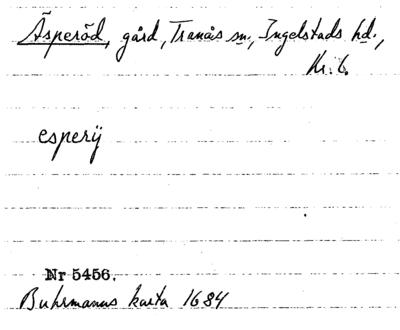 Äsperöd, gård, Tranås sn., Ingelstads hd.,
Kr. l.
esperÿ
Nr 5456.
Buhrmanns karta 1684